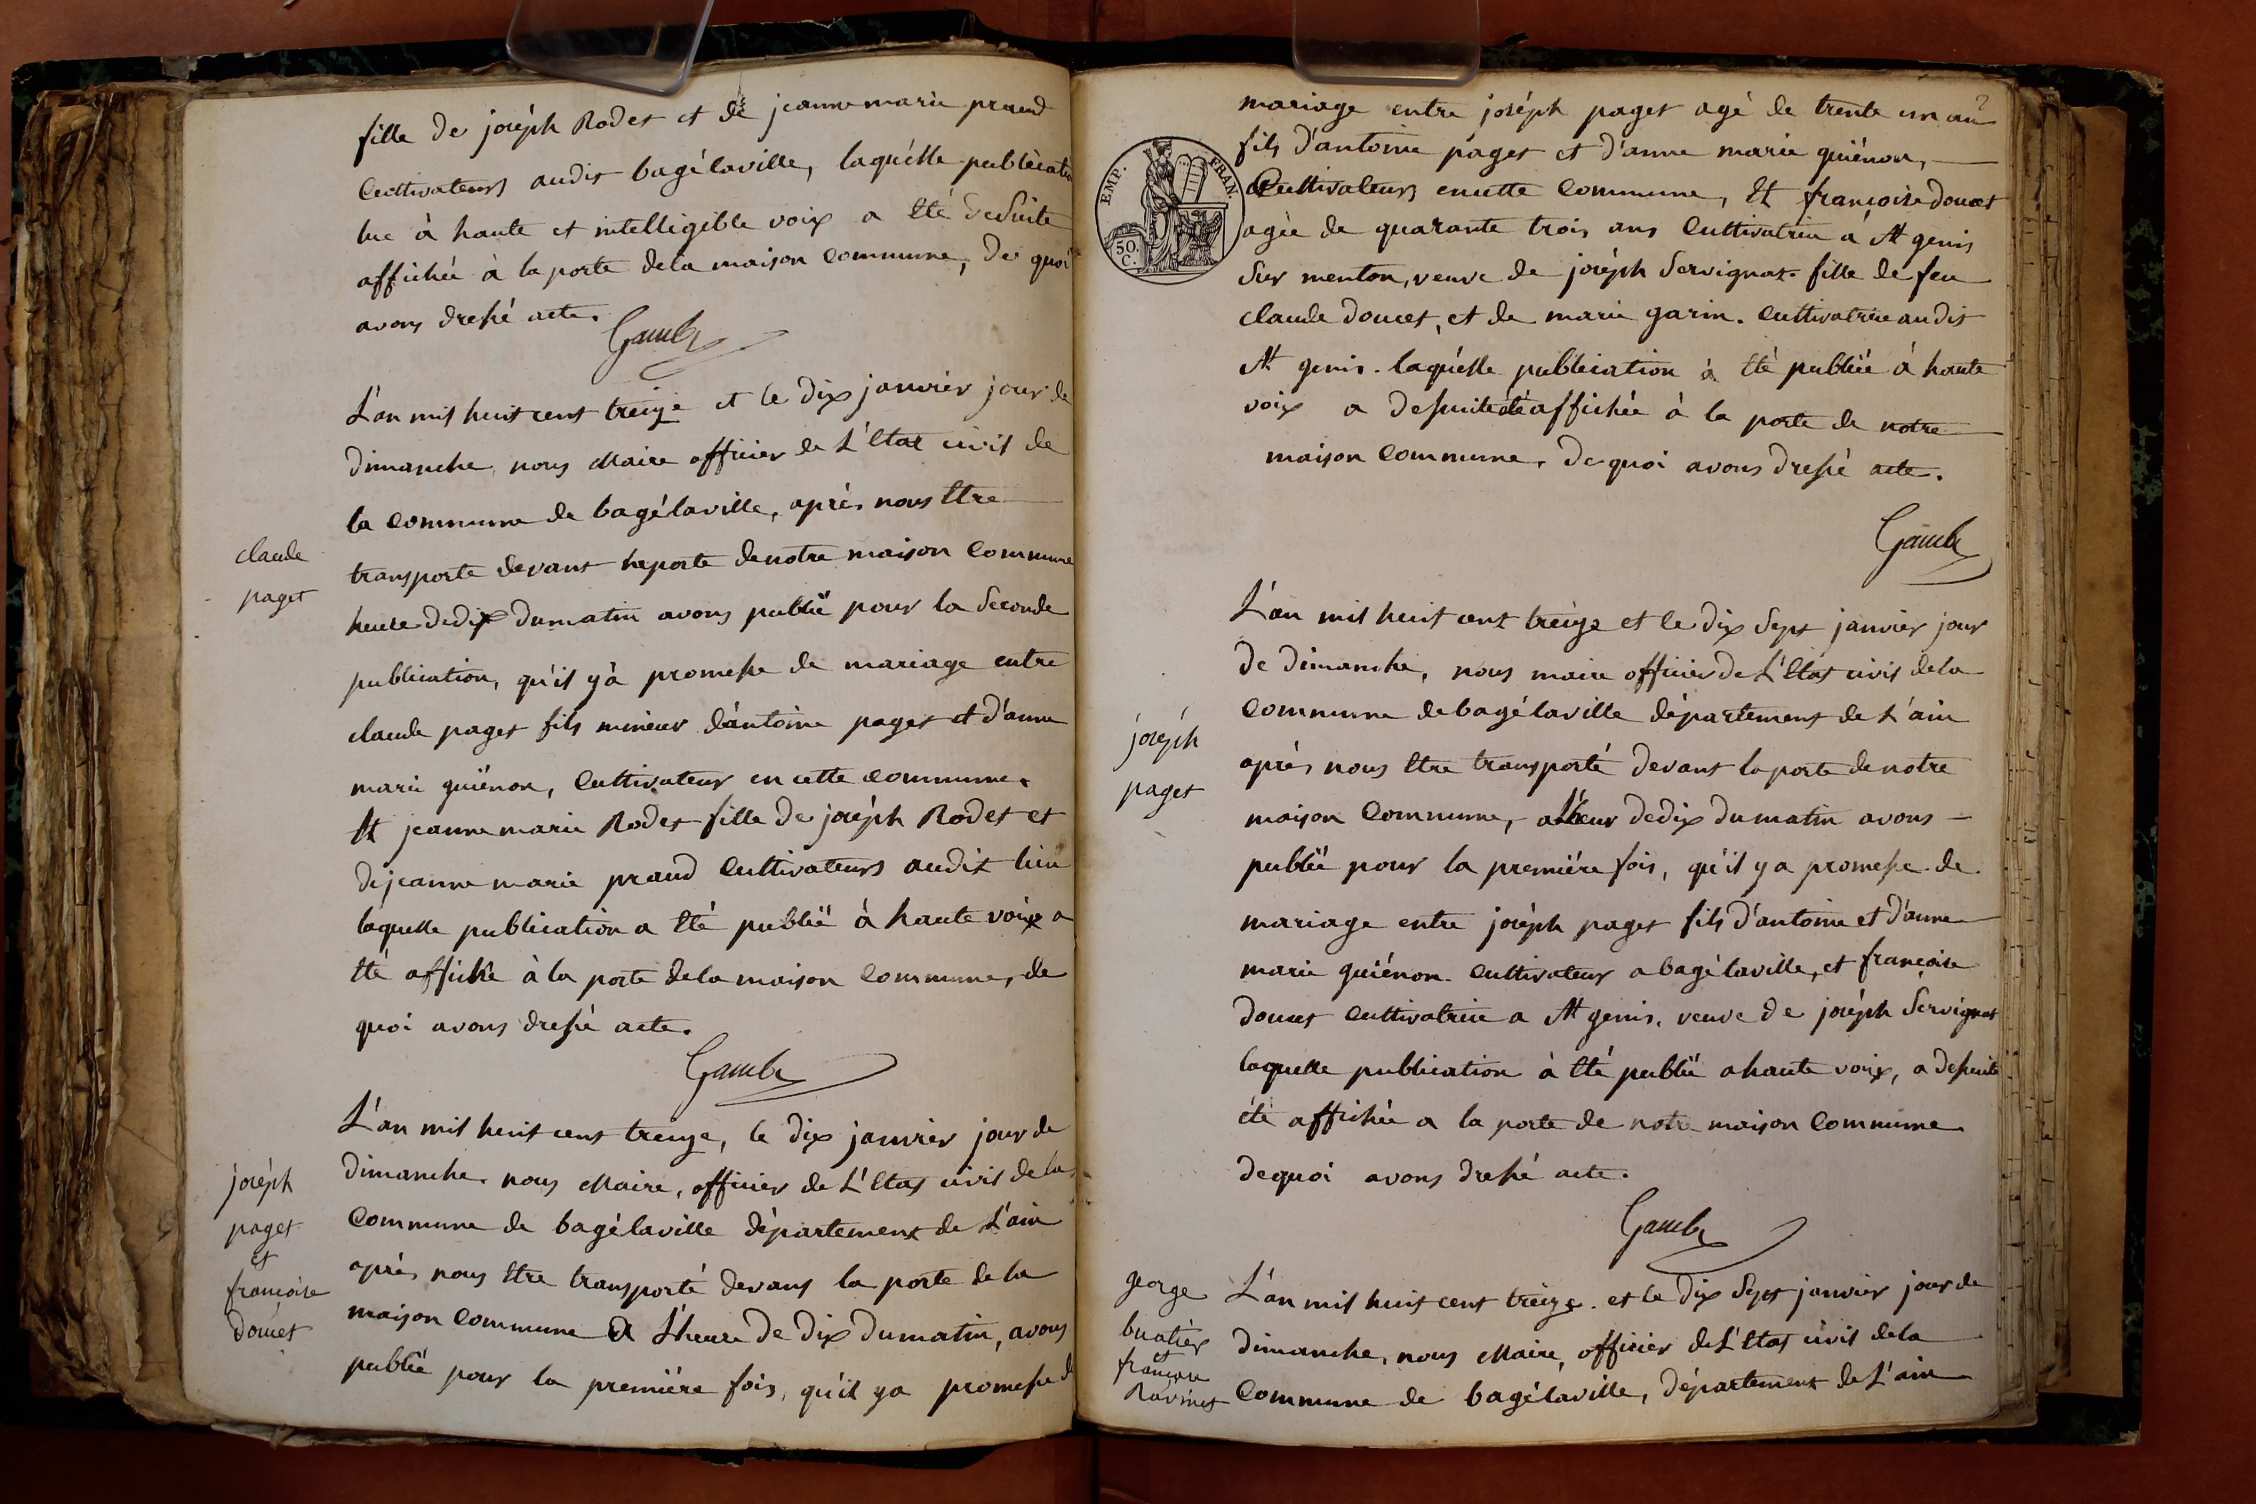 fille de joséph Rodet et de jeanne marie praud
Cultivateurs audit bagélaville, laquélle publication
lue à haute et intelligible voix a été de Suite
affichée à la porte de la maison commune, de quoi
avons dressé acte.
Gamb
L'an mil huit cent treize et le dix janvier jour de
dimanche, nous Maire officier de L'Etat civil de
la Commune de bagélaville, aprés nous Etre
claude
paget
transporte devant la porte de notre maison Commune
heure de dix du matin avons publié pour la Seconde
publication, qu'il y à promesse de mariage entre
claude paget fils mineur d'antoine paget et d'anne
marie guiénon, Cultivateur en cette commune.
Et jeanne marie Rodet fille de joséph Rodet et
de jeanne marie praud Cultivateurs audit lieu
laquelle publication a Eté publié à haute voix a
Eté affiché à la porte de la maison Commune, de
quoi avons dressé acte.
Gamb
joséph
paget
et
françoise
doucet
L'an mil huit cent treize, le dix janvier jour de
dimanche. nous Maire, officier de L'Etat civil de la
Commune de bagélaville département de L'ain
aprés nous Etre transporté devant la porte de la
maison Commune A L'heure de dix du matin, avons
publié pour la premiére fois, qu'il y a promesse de
2
EMP. FRAN.
50.
C.
mariage entre joséph paget agé de trente un an
fils d'antoine paget et d'anne marie guiénon,
Cultivateurs en cette Commune, Et françoise doucet
agée de quarante trois ans Cultivatrice a St genis
Sur menton, veuve de joséph Servignat fille de feu
claude doucet, et de marie garin. Cultivatrice audit
St genis. laquélle publication à Eté publiée à haute
voix a desuite été affichée à la porte de notre
maison Commune. de quoi avons dressé acte.
Gamb
joséph
paget
L'an mil huit cent treize et le dix Sept janvier jour
de dimanche, nous maire officier de L'Etat civil de la
Commune de bagélaville département de L'ain
aprés nous Etre transporté devant la porte de notre
maison Commune, a L'heur de dix du matin avons
publié pour la premiére fois, qu'il y a promesse de
mariage entre joséph paget fils d'antoine et d'anne
marie guiénon. Cultivateur a bagélaville, et françoise
doucet Cultivatrice a St genis, veuve de joséph Servignat
laquelle publication à Eté publié a haute voix, a desuite
été affichée a la porte de notre maison Commune
de quoi avons dressé acte.
Gamb
george
buatier
et
françoise
Ravinet
L'an mil huit cent treize. et le dix Sept janvier jour de
dimanche, nous Maire, officier de L'Etat civil de la
Commune de bagélaville, département de L'ain